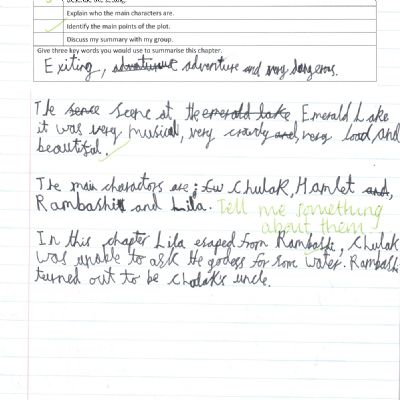 Explain who the main characters are.
Identify the main points of the plot.
Discuss my summary with my group.
Give three key words you would use to summarise this chapter.
Exiting, adventure and very dangerous.
The scene at the Emerald Lake
it was very musical, very crowdy, very load, and
beautiful.
The main charactors are; Chulak, Hamlet,
Rambashi and Lila. Tell me something
about them
In this chapter Lila esaped from Rambashi, Chulak
was unable to ask the godess for som water. Rambashi
turned out to be Chulak's uncle.